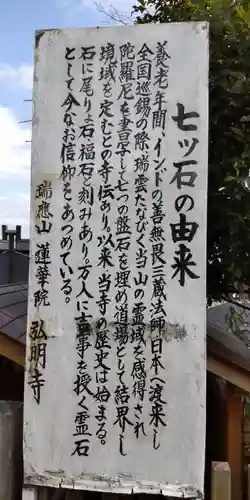 七ッ石の由来
養老年間、インドの善無畏三蔵法師日本へ渡来し
全国巡錫の際、瑞雲たなびく当山の霊域を感得され
陀羅尼を書写して七つの盤石を埋め道場として結界し
境域を定むとの寺伝あり。以来、当寺の歴史は始まる。
石に尾りょ石福石と刻みあり。万人に吉事を授く霊石
として今なお信仰をあつめている。
瑞應山 蓮華院 弘明寺